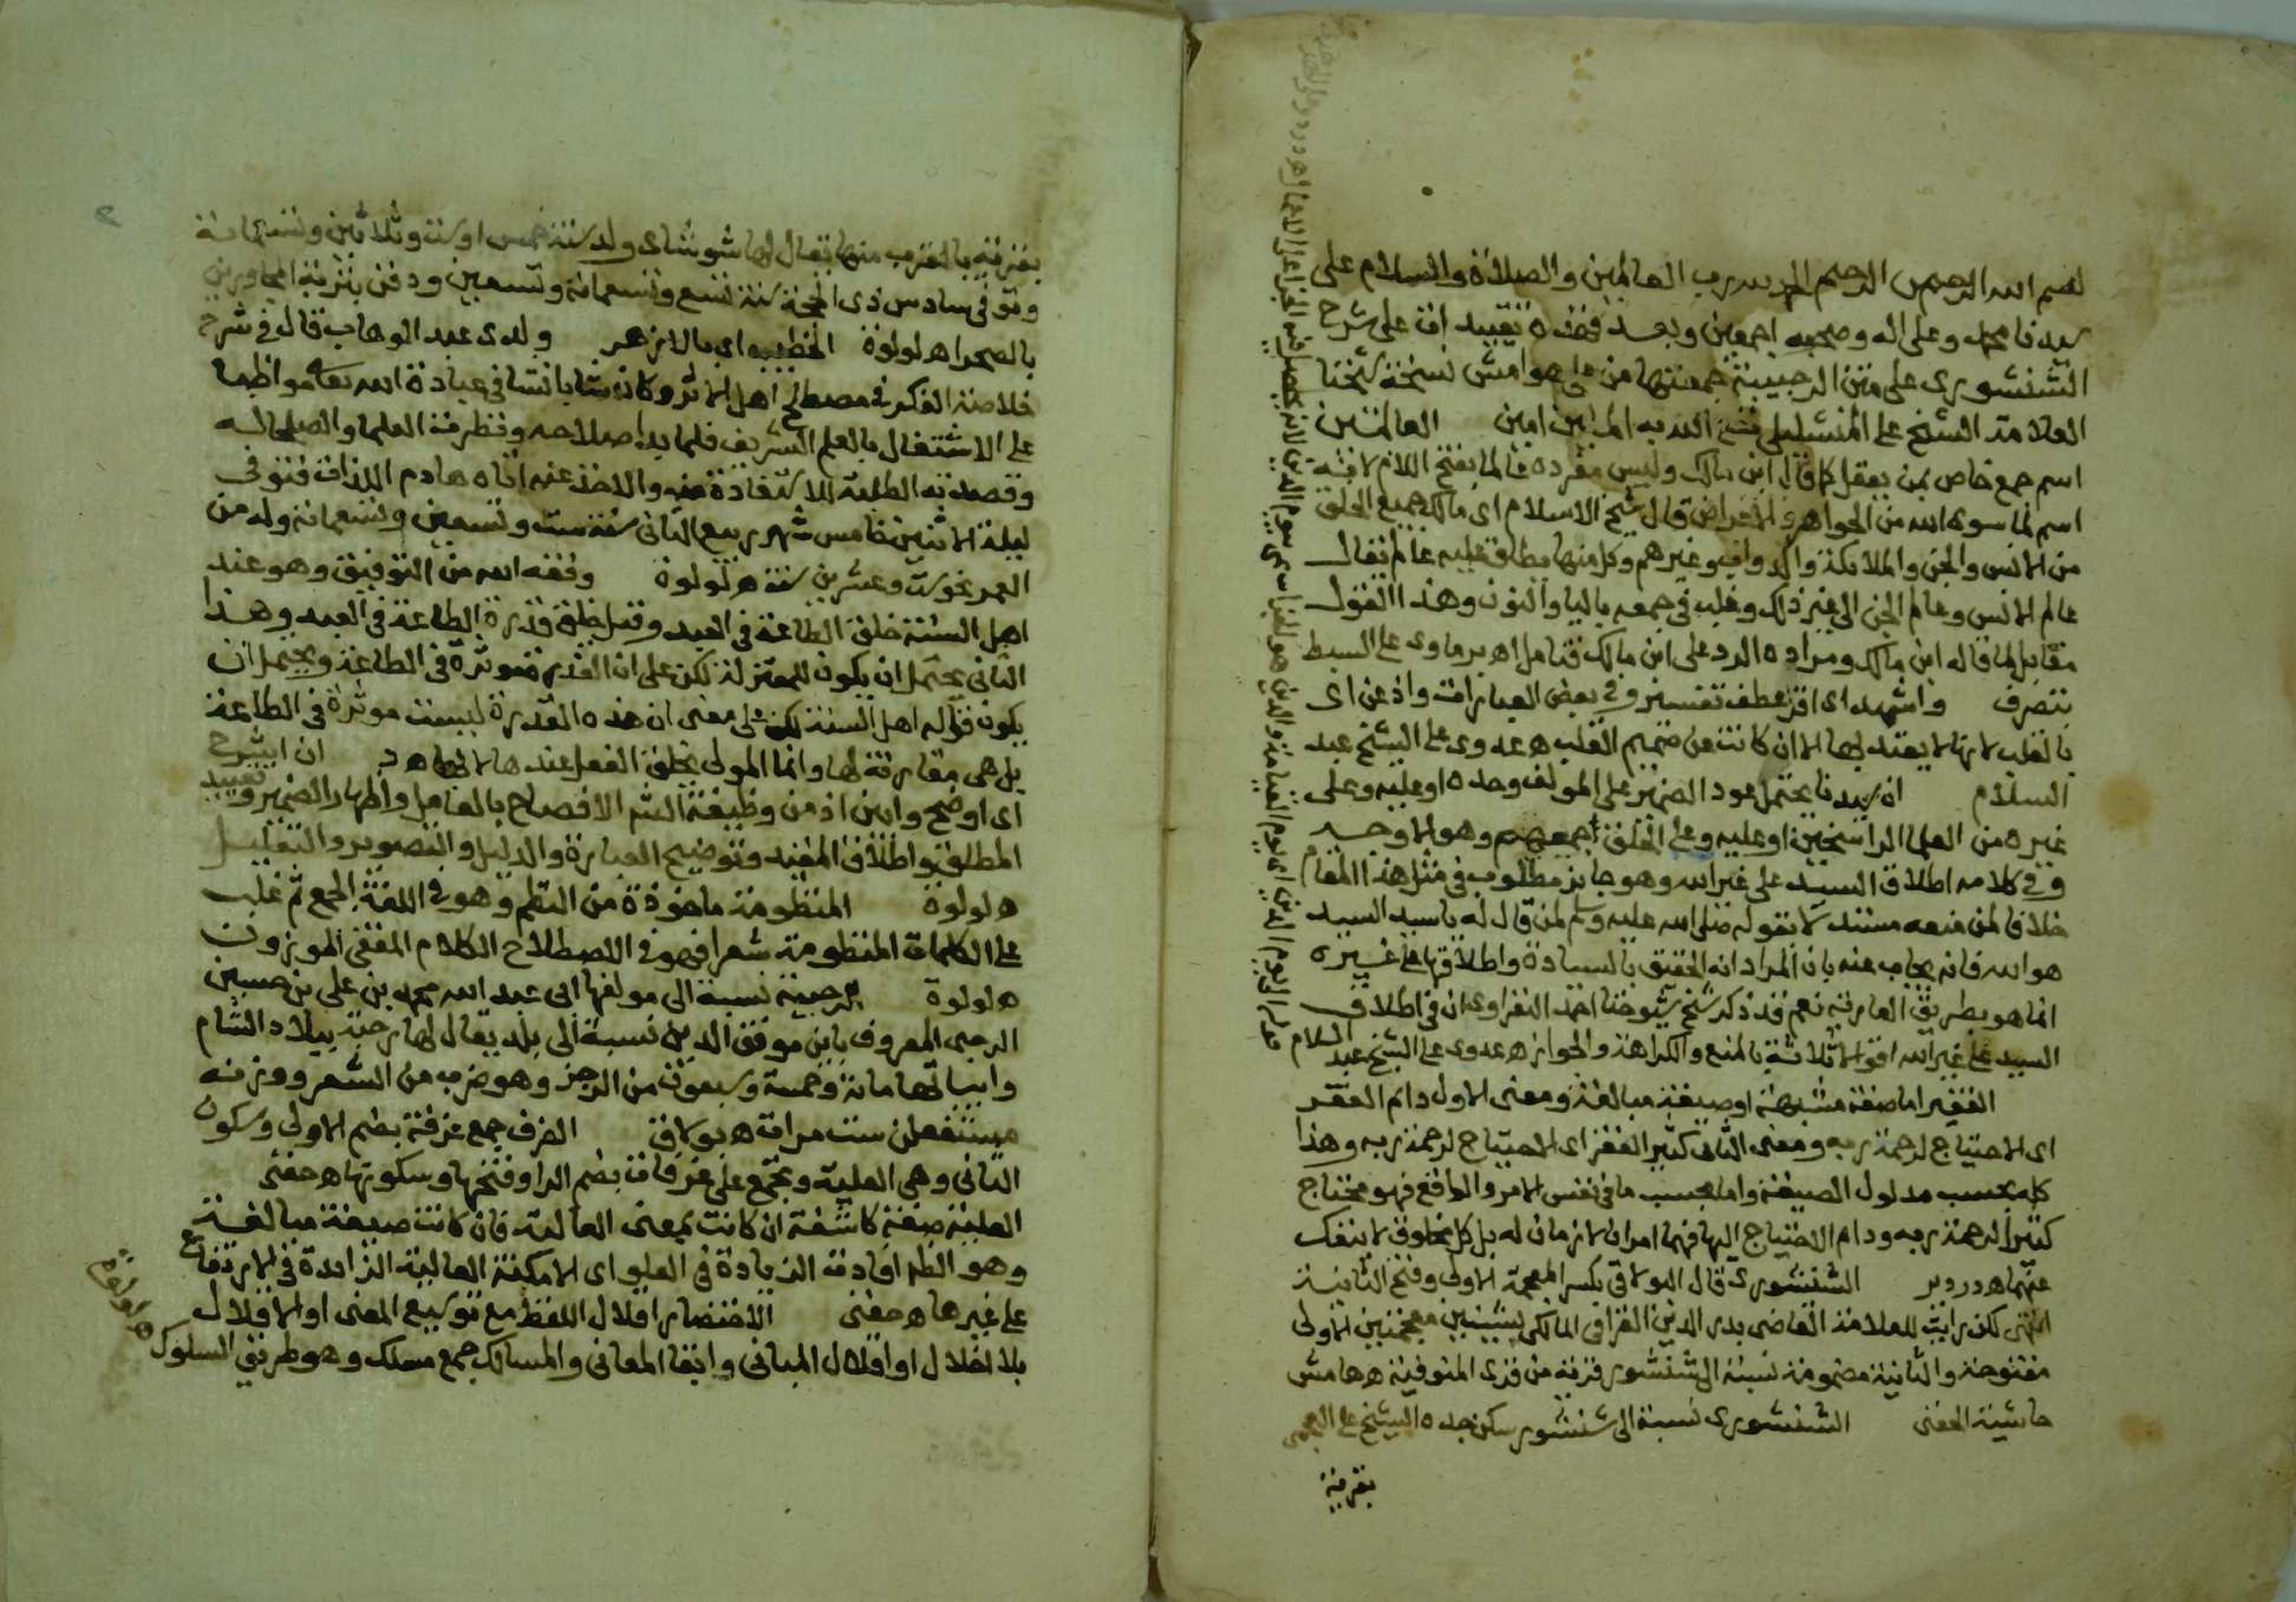 بسم الله الرحمن الرحيم الحمد لله رب العالمين والصلاة والسلام على
سيدنا محمد وعلى اله وصحبه اجمعين وبعد فهذه تقييدات على شرح
الشنشورى على متن الرحبية جمعتها من على هوامش نسخة شيخنا
العلامة الشيخ على المنشليلى فتح الله به امين العالمين
اسم جمع خاص بمن يعقل كما قال ابن مالك وليس مفرده عالما بفتح اللام لانه
اسم لما سوى الله من الجواهر والاعراض قال شيخ الاسلام اى مالك جميع الخلق
من الانس والجن والملايكة والدواب وغيرهم وكل منها يطلق عليه عالم يقال
عالم الانس وعالم الجن الى غير ذلك وغلب فى جمعه بالياء والنون وهذا القول
مقابل لما قاله ابن مالك ومراده الرد على ابن مالك فتامل اه برماوى على السبط
بتصرف واشهد اى اقر عطف تفسير وفى بعض العبارات واذعن اى
بالقلب لانها لا يعتد بها الا ان كانت من صميم القلب ه عدوى على الشيخ عبد
السلام ان سيدنا يحتمل عود الضمير على المولف وحده او عليه وعلى
غيره من العلما الراسخين او عليه وعلى الخلق اجمعهم وهو الاوجه
وفى كلامه اطلاق السيد على غير الله وهو جايز مطلوب فى مثل هذا المقام
خلافا لمن منعه مستندا لقوله صلى الله عليه وسلم لمن قال له يا سيد السيد
هو الله فانه يجاب عنه بان المراد انه الحقيق بالسيادة واطلاقها على غيره
انما هو بطريق العارية نعم قد ذكر شيخ شيوخنا احمد النفراوى ان فى اطلاق
السيد على غير الله اقوالا ثلاثة بالمنع والكراهة والجواز ه عدوى على الشيخ عبد السلام
الفقير اما صفة مشبهة او صيغة مبالغة ومعنى الاول دايم الفقر
اى الاحتياج لرحمة ربه ومعنى الثانى كثير الفقر اى الاحتياج لرحمة ربه وهذا
كله بحسب مدلول الصيغة واما بحسب ما فى نفس الامر والواقع فهو محتاج
كثيرا لرحمة ربه ودام الاحتياج اليها فهما امران لازمان له بل كل مخلوق لا ينفك
عنهما ه دردير الشنشورى قال البولاقى بكسر المعجمة الاولى وفتح الثانية
انتهى لكن رايت للعلامة القاضى بدر الدين القرافى المالكى بشينين معجمتين الاولى
مفتوحة والثانية مضمومة نسبة الى شنشور قرية من قرى المنوفية ه هامش
حاشية الحفنى الشنشورى نسبة الى شنشور سكن جده الشيخ على العجمى
بقرية
بقرية بالقرب منها يقال لها شوشاى ولد سنة خمس او ست وثلاثين وتسعمائة
وتوفى سادس ذى الحجة سنة تسع وتسعمائة وتسعين ودفن بتربة المجاورين
بالصحرا ه لولوة الخطيب اى بالازهر ولدى عبد الوهاب قال فى شرح
خلاصة الفكر فى مصطلح اهل الاثر وكان شابا نشا فى عبادة الله تعالى مواظبا
على الاشتغال بالعلم الشريف فلما بدا صلاحه ونظرته العلما والصلحا له
وقصدته الطلبة للاستفادة منه والاخذ عنه اتاه هادم اللذات فتوفى
ليلة الاثنين خامس شهر ربيع الثانى سنة ست وتسعين وتسعمائة وله من
العمر نحو ست وعشرين سنة ه لولوة وفقه الله من التوفيق وهو عند
اهل السنة خلق الطاعة فى العبد وقيل خلق قدرة الطاعة فى العبد وهذا
الثانى يحتمل ان يكون للمعتزلة لكن على ان القدرة موثرة فى الطاعة ويحتمل ان
يكون قوله اهل السنة لكن على معنى ان هذه القدرة ليست موثرة فى الطاعة
بل هى مقارنة لها وانما المولى يخلق الفعل عندها لا بها ه د ان اشرح
اى اوضح وابين اذ من وظيفة الشرح الافصاح بالفاعل واظهار الضمير وتقييد
المطلق واطلاق المقيد وتوضيح العبارة والدليل والتصوير والتعليل
ه لولوة المنظومة ماخوذة من النظم وهو فى اللغة الجمع ثم غلب
على الكلمات المنظومة شعرا فهو فى الاصطلاح الكلام المقفى الموزون
ه لولوة الرحبية نسبة الى مولفها ابى عبد الله محمد بن على بن حسين
الرحبى المعروف بابن موفق الدين نسبة الى بلد يقال لها رحبة ببلاد الشام
وابياتها مائة وخمسة وسبعون من الرجز وهو ضرب من الشعر ووزنه
مستفعلن ست مرات ه بولاق الغرف جمع غرفة بضم الاولى وسكون
الثانى وهى العلية وتجمع على غرفات بضم الرا وفتحها وسكونها ه حفنى
العلية صفة كاشفة ان كانت بمعنى العالية فان كانت صيغة مبالغة
وهو الظاهر افادت الزيادة فى العلو اى الامكنة العالية الزايدة فى الارتفاع
على غيرها ه حفنى الاختصار اقلال اللفظ مع توسيع المعنى او الاقلال
بلا اخلال او اقلال المبانى وابقا المعانى والمسالك جمع مسلك وهو طريق السلوك